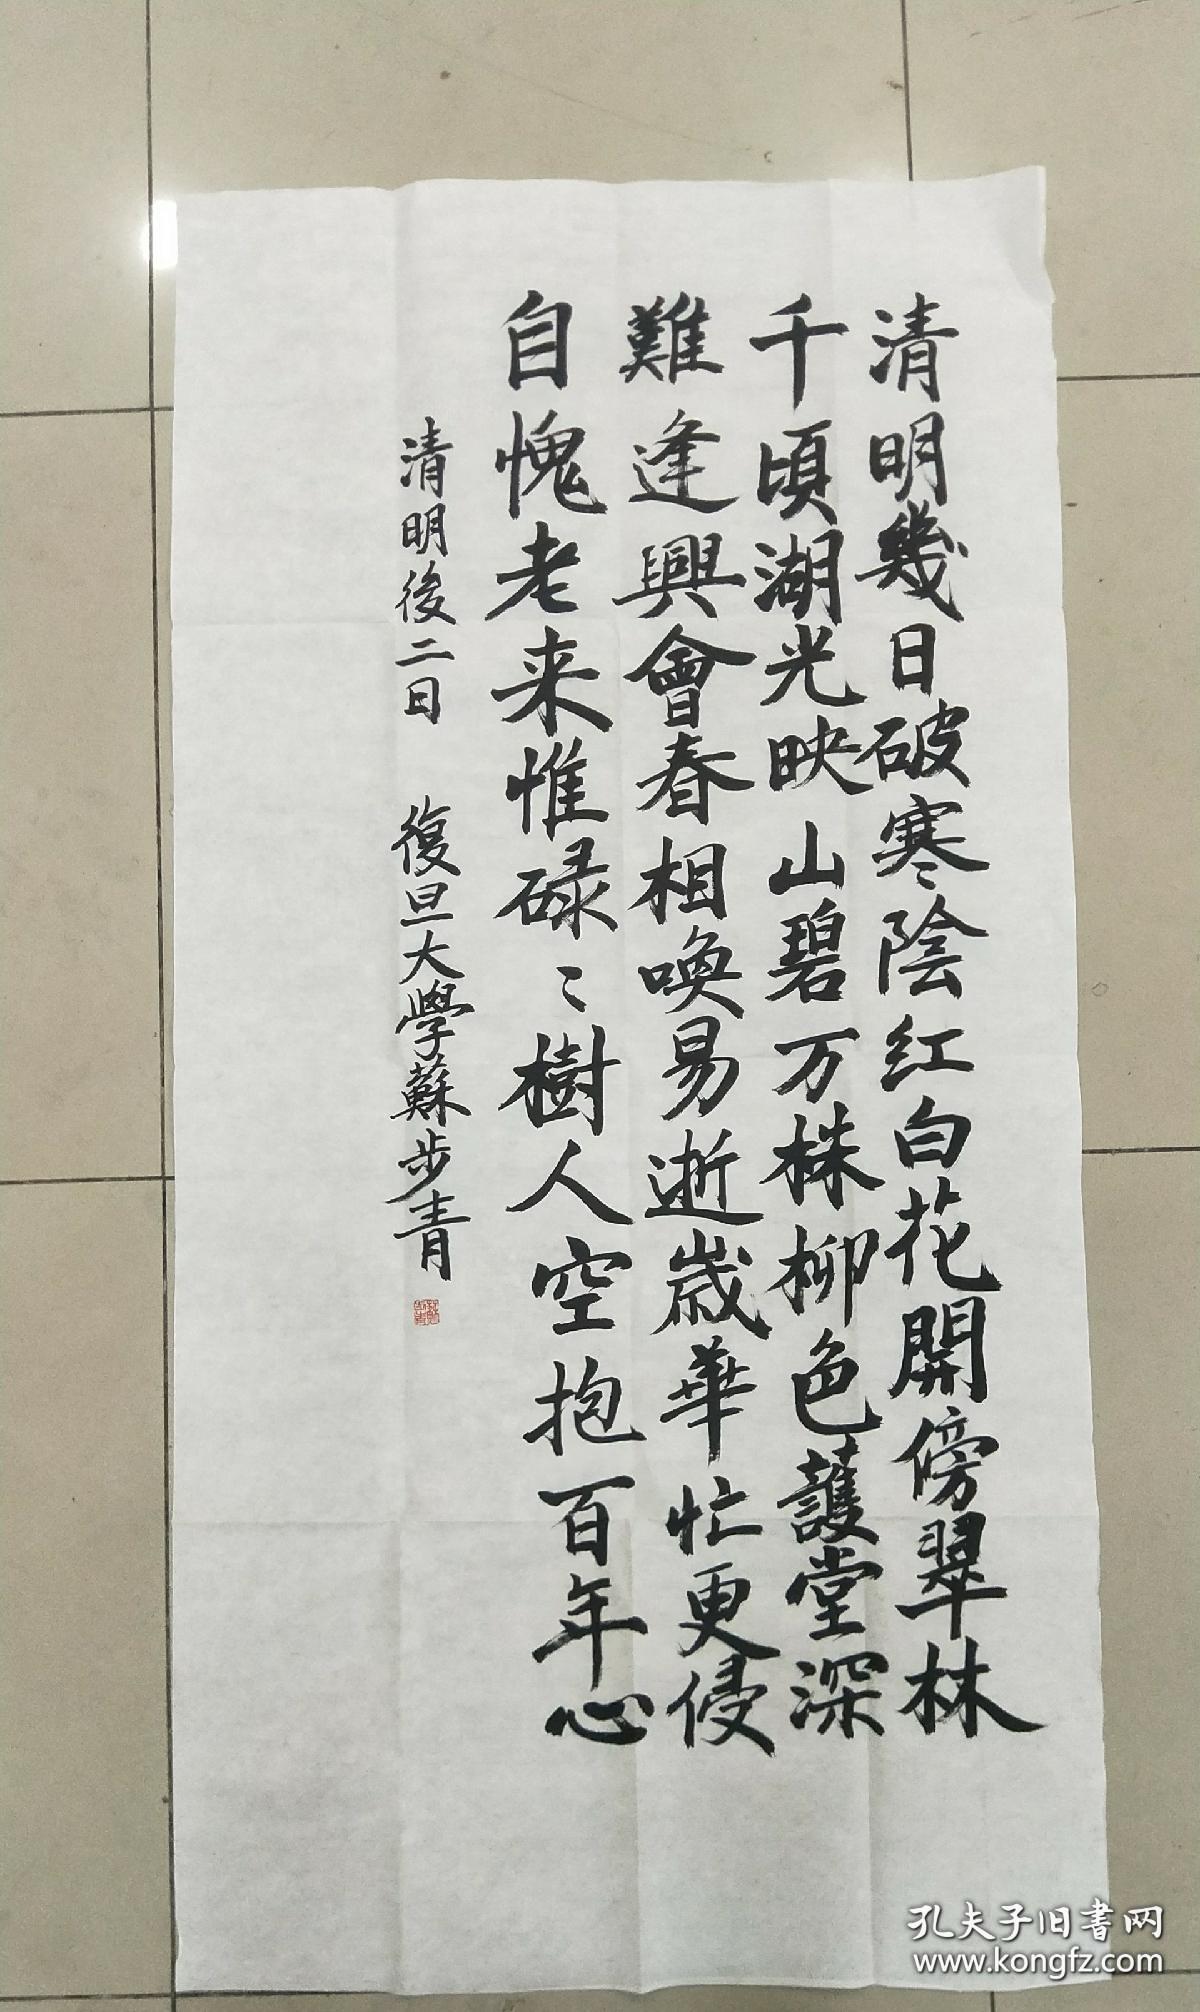 清明幾日破寒陰红白花開傍翠林
千頃湖光映山碧万株柳色護堂深
難逢興會春相喚易逝歲華忙更侵
自愧老来惟碌〻樹人空抱百年心
清明後二日 復旦大學蘇步青
孔夫子旧書网
www.kongfz.com